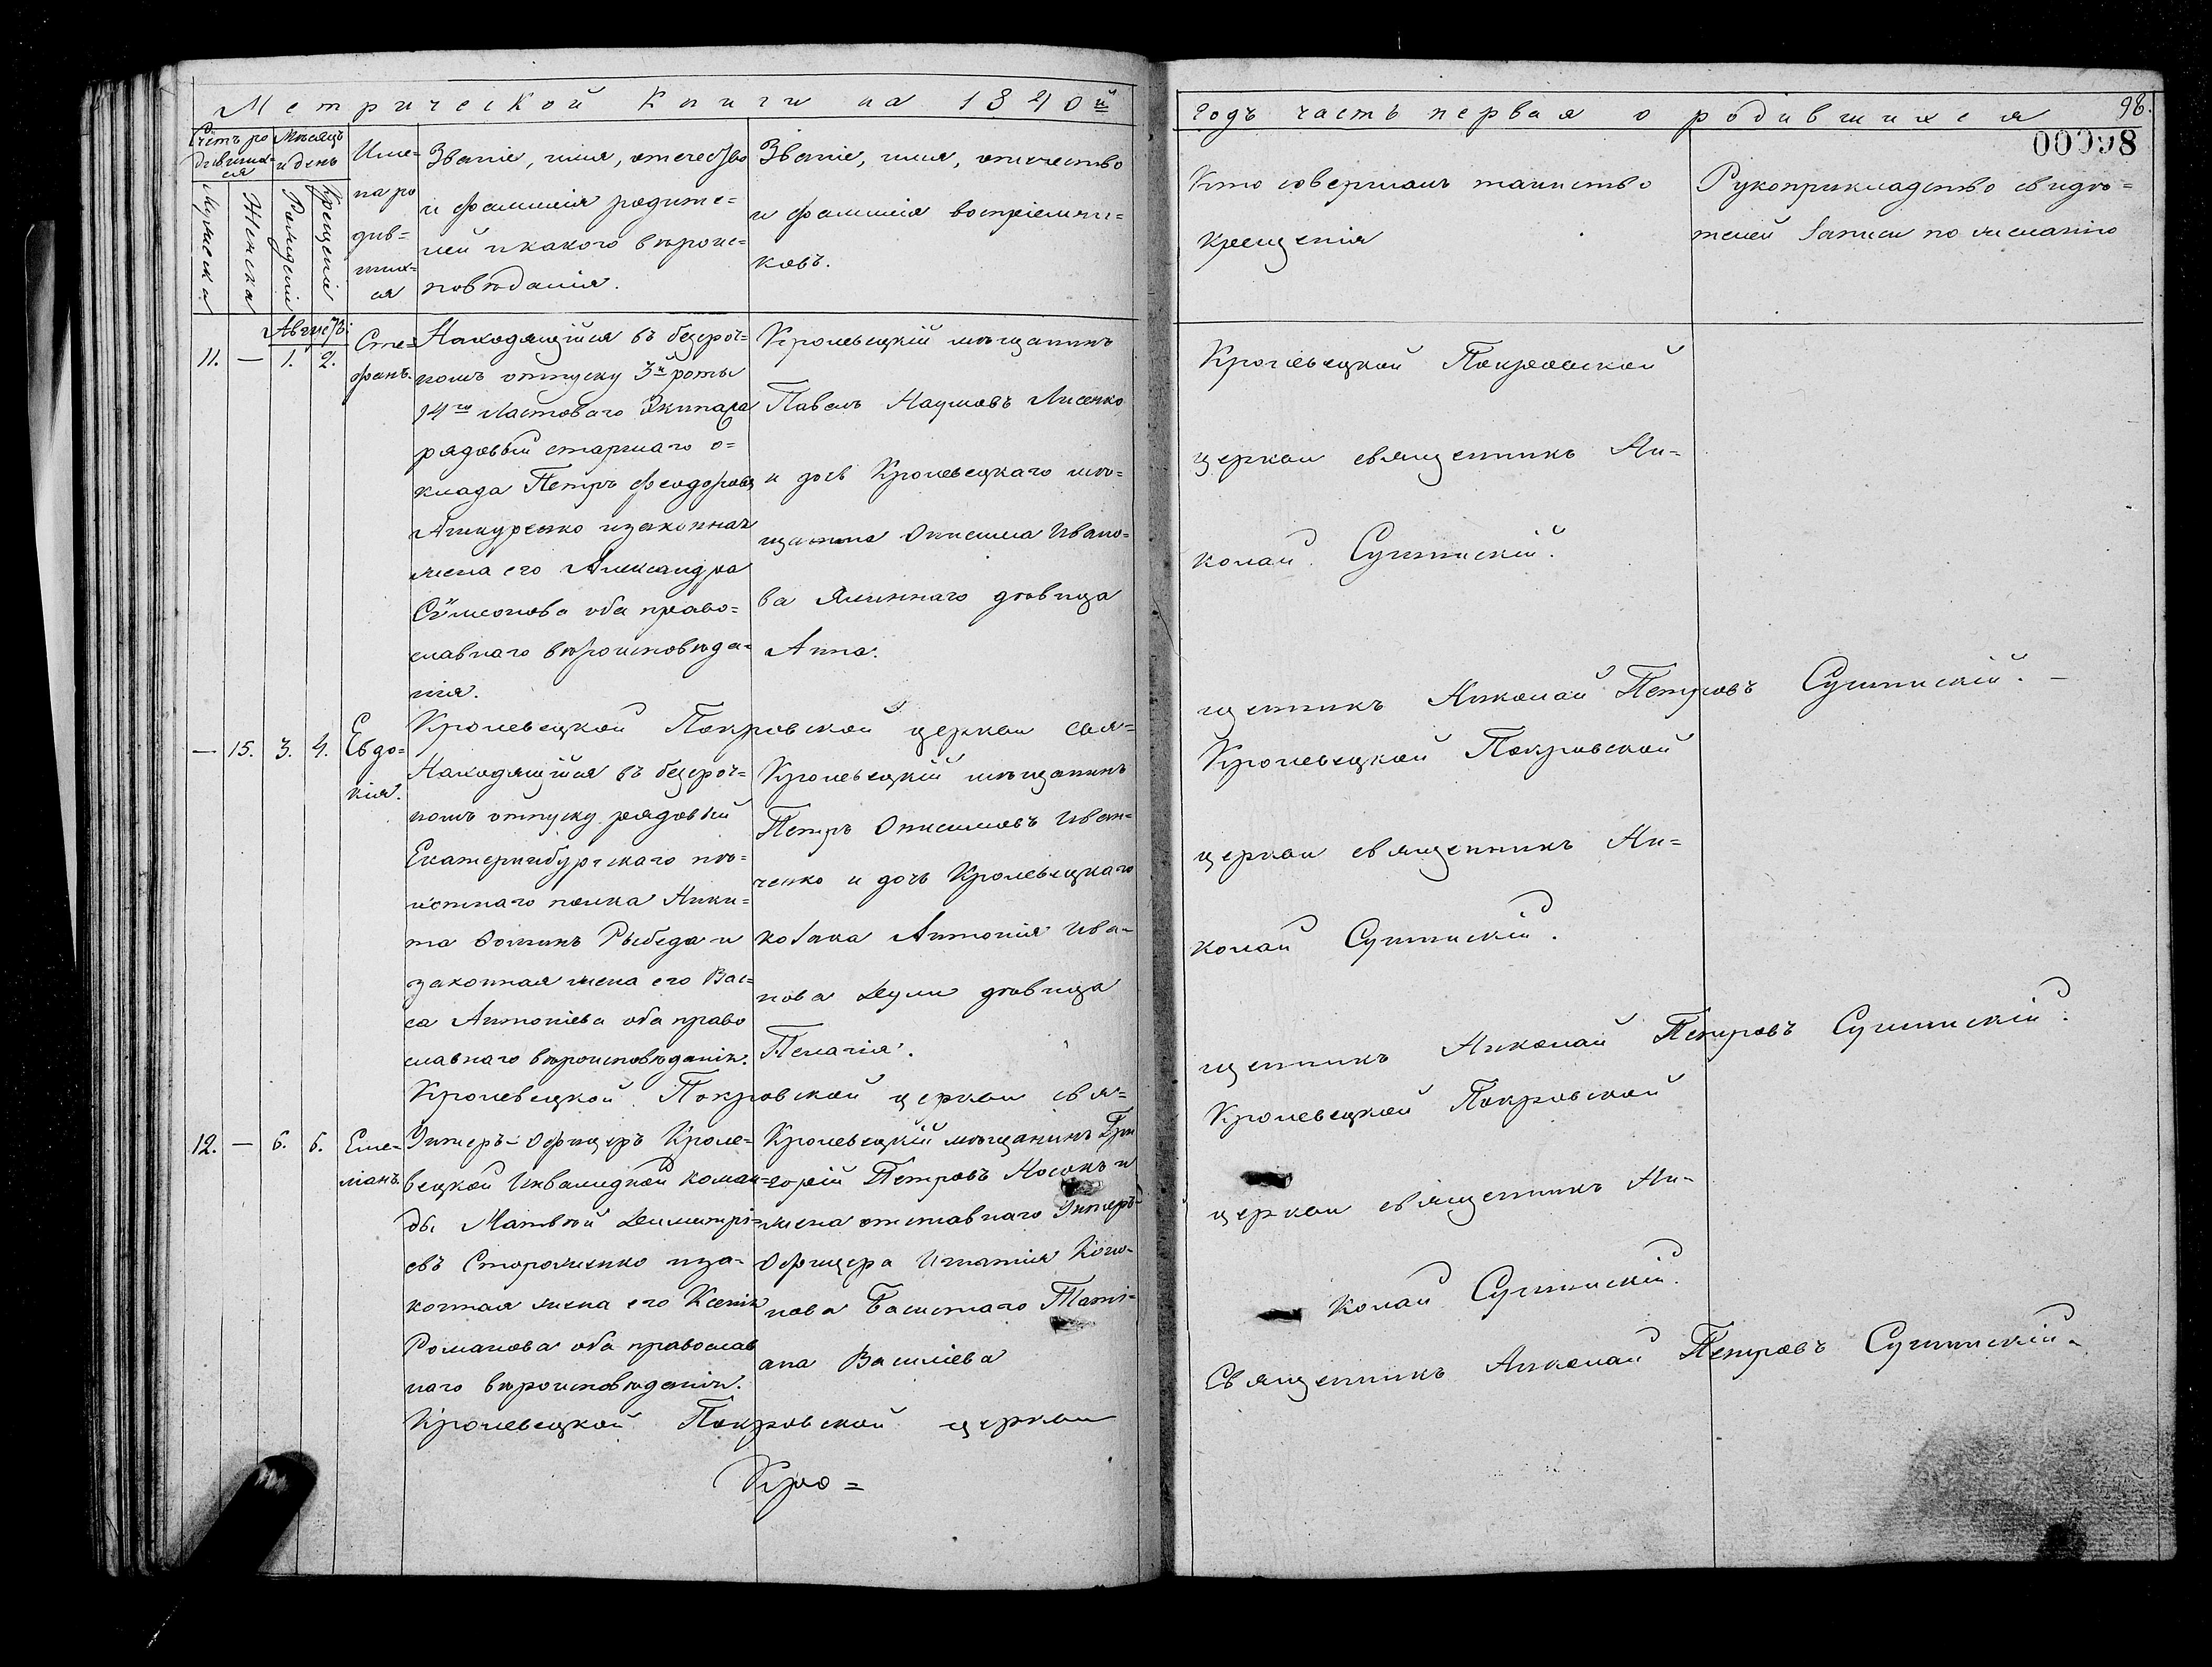 Метрической книги на 1840й
годъ часть первая о родившихся
98.
00098
Счетъ ро
дивших-
ся
Мужеска
Женска
Месяцъ
и день
Рождения
Крещенія
Име-
на ро
див-
ших-
ся
Званіе, имя, отечество
и фамилія родите-
лей и какого вѣроис-
повѣданія.
Званіе, имя, отечество
и фамилія воспріемни-
ковъ.
Кто совершалъ таинство
крещенія
Рукоприкладство свидѣ=
телей записи по желанію
Август:
11. — 1. 2.
Сте=
фанъ.
Находящійся въ безсроч=
номъ отпуску 3й роты
14го Ластоваго Экипажа
рядовый старшаго о=
клада Петръ Феодоровъ
и законная
жена его Александра
Сѵмеонова оба право=
славнаго вѣроисповѣда=
нія.
Кролевецкій мѣщанинъ
Павелъ Наумовъ Лисенко
и дочь Кролевецкаго мѣ=
щанина Онисима Ивано=
ва дѣвица
Анна.
Кролевецкой Покровской
церкви священникъ Ни=
колай Сушинскій.
Кролевецкой Покровской церкви свя=
щенникъ Николай Петровъ Сушинскій. —
— 15. 3. 4.
Евдо=
кія.
Находящійся въ безсроч=
номъ отпуску рядовый
Екатеринбургскаго пѣ=
хотнаго полка Ники=
та Фоминъ Рыбеда и
законная жена его Вас=
са Антоніева оба право
славнаго вѣроисповѣданія.
Кролевецкій мѣщанинъ
Петръ Онисимовъ Иван=
ченко и дочь Кролевецкаго
козака Антонія Ива=
нова дѣвица
Пелагія.
Кролевецкой Покровской
церкви священникъ Ни=
колай Сушинскій.
Кролевецкой Покровской церкви свя=
щенникъ Николай Петровъ Сушинскій.
12. — 6. 6.
Еме=
ліанъ
Унтеръ-Офицеръ Кроле=
вецкой Инвалидной коман=
ды Матвѣй Димитрі=
евъ Стороженко и за=
конная жена его Ксенія
Романова оба православ
наго вѣроисповѣданія.
Кролевецкій мѣщанинъ Гри
горій Петровъ Носокъ и
жена отставнаго Унтеръ-
Офицера Игнатія Коно=
нова Таті=
ана Василіева
Кролевецкой Покровской
церкви священникъ Ни=
колай Сушинскій.
Кролевецкой Покровской церкви
Священникъ Николай Петровъ Сушинскій.
Кро=